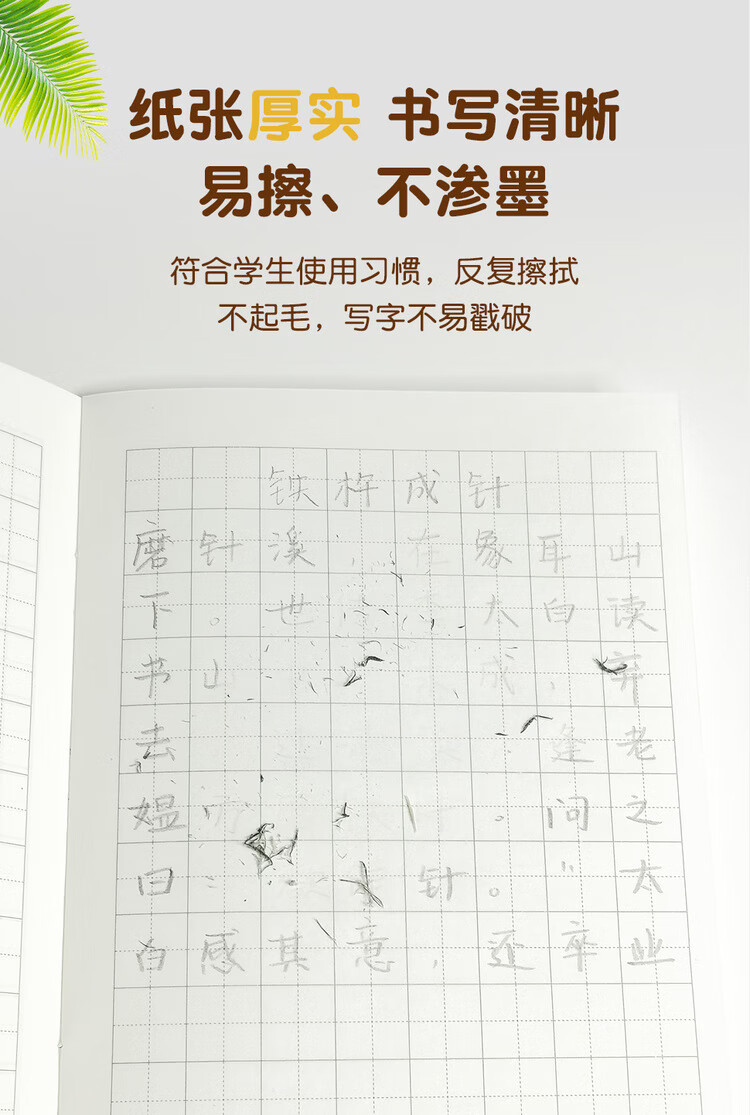 纸张厚实 书写清晰
易擦、不渗墨
符合学生使用习惯，反复擦拭
不起毛，写字不易戳破
铁杵成针
磨针溪，在象耳山
下。世太白读
书山成，弃
去。逢老
媪。问之
曰针。"太
白感其意，还卒业